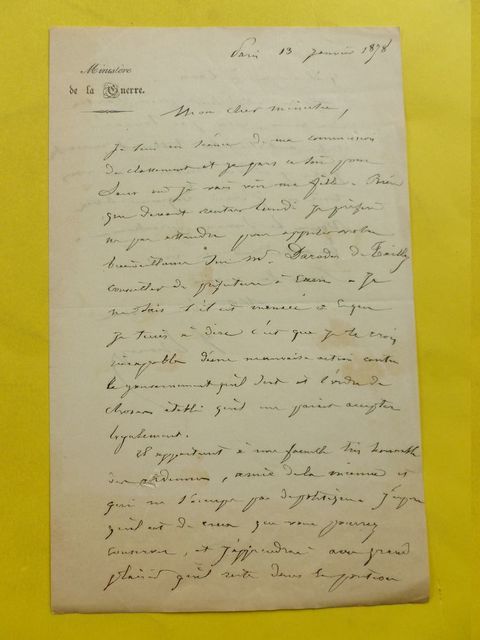 Paris 13 Janvier 1878
Ministère
de la Guerre.
Mon cher ministre,
Je suis en séance de ma commission
de classement et je pars ce soir pour
où je vais voir ma fille. Bien
que devant rentrer lundi je préfère
ne pas attendre pour appeler votre
bienveillance sur Mr. de
conseiller de préfecture à Je
ne sais s'il est menacé
je tiens à dire c'est que je le crois
incapable d'une mauvaise action contre
le gouvernement qu'il sert et l'ordre de
choses établi qu'il me paraît accepter
loyalement.
Il appartient à une famille très honorable
des Ardennes, amie de la mienne et
qui ne s'occupe pas de politique. J'espère
qu'il est de ceux que vous pourrez
conserver, et j'apprendrai avec grand
plaisir qu'il reste dans la position